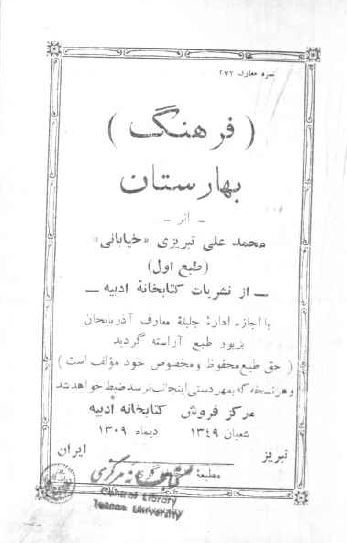 نمره معارف ۲۷۲
( فرهنگ )
بهارستان
- از -
محمد علی تبریزی «خیابانی»
(طبع اول)
ــ از نشریات کتابخانهٔ ادبیه ــ
با اجازه ادارهٔ جلیلهٔ معارف آذربایجان
بزیور طبع آراسته گردید
( حق طبع محفوظ و مخصوص خود مؤلف است )
و هر نسخه که بمهر دستی اینجانب نرسد ضبط خواهد شد
مرکز فروش کتابخانه ادبیه
شعبان ۱۳۴۹ دیماه ۱۳۰۹
تبریز ایران
مطبعهٔ
کتابخانه مرکزی
Central Library
Tehran University